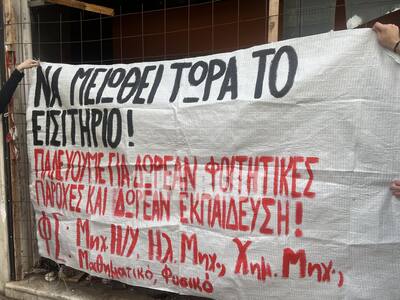 ΝΑ ΜΕΙΩΘΕΙ ΤΩΡΑ ΤΟ
ΕΙΣΙΤΗΡΙΟ!
ΠΑΛΕΥΟΥΜΕ ΓΙΑ ΔΩΡΕΑΝ ΦΟΙΤΗΤΙΚΕΣ
ΠΑΡΟΧΕΣ ΚΑΙ ΔΩΡΕΑΝ ΕΚΠΑΙΔΕΥΣΗ!
ΦΣ: Μηχ. Η/Υ, Ηλ. Μηχ., Χημ. Μηχ.,
Μαθηματικό, Φυσικό